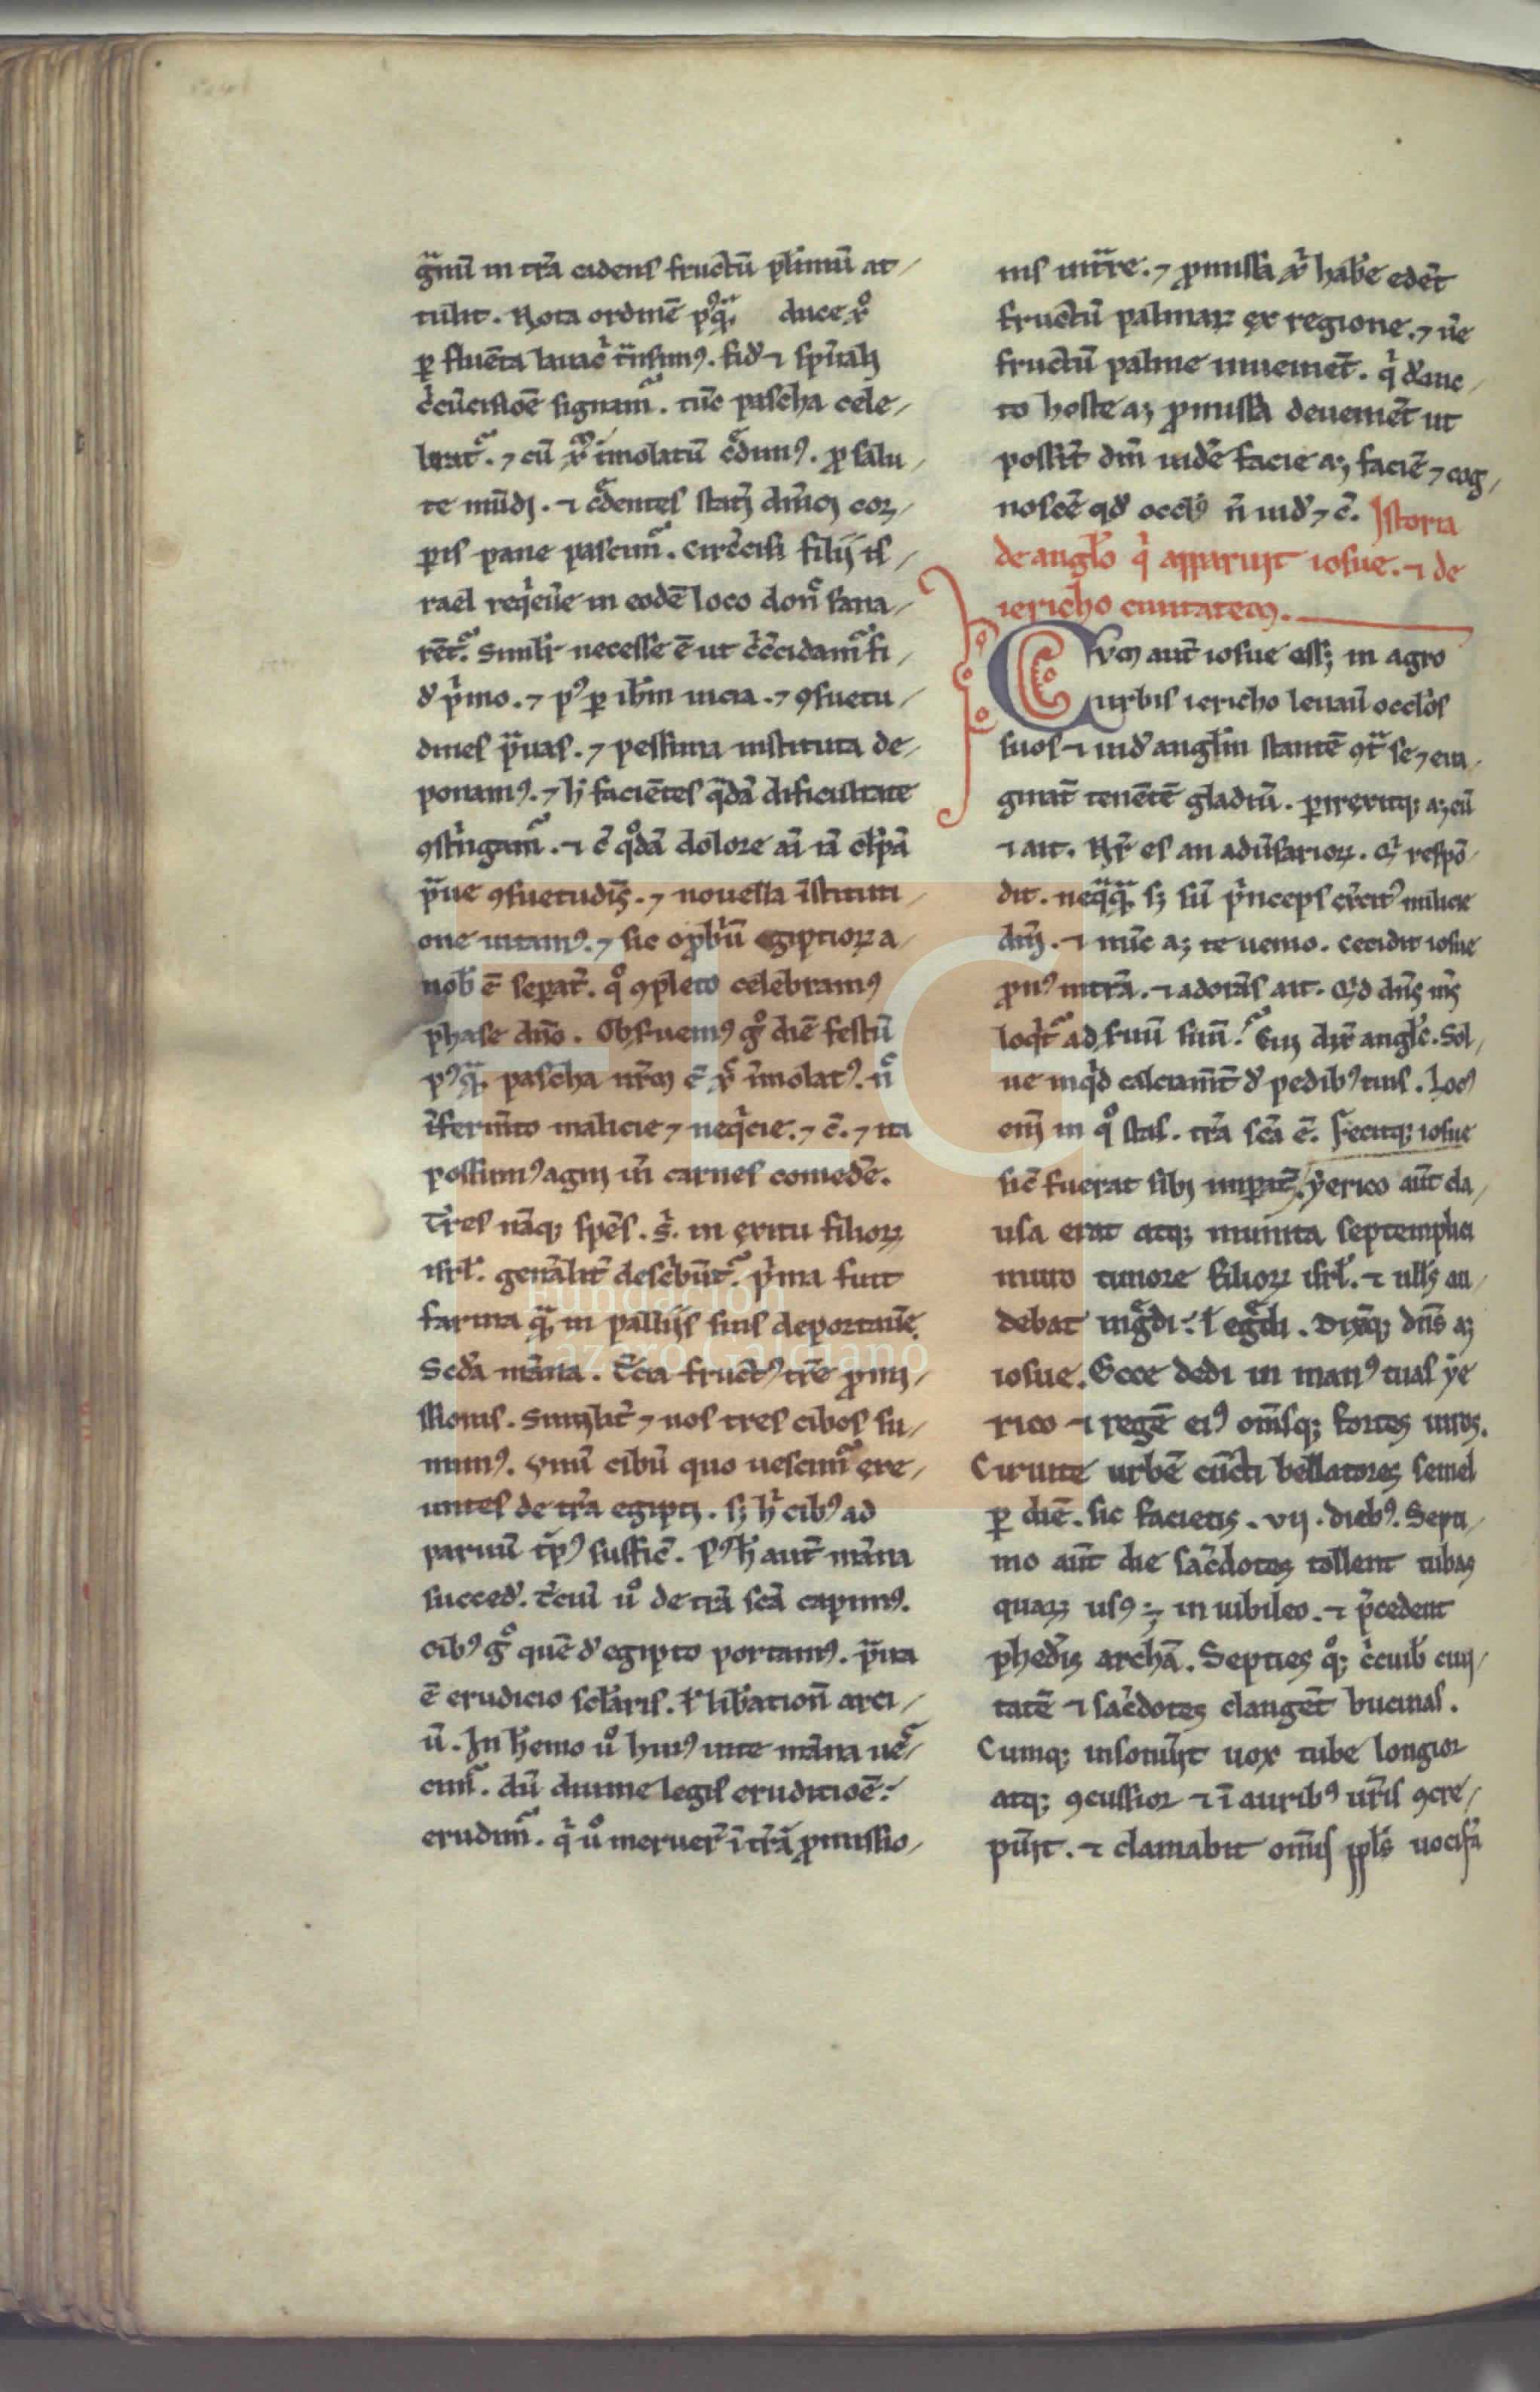 g̃nũ in tr̃a cidens fructũ pl̃imũ at/
tulit. Nota ordinẽ p⁹q̃ duce xͦ
ꝑ fluẽta lauac̃ t̃nsim⁹. fid̃ ⁊ sp̃uali
c̃cũcisiõe signam̃. tũc pascha cele/
brat̃. ⁊ cũ xp̃m ĩmolatũ c̃dim⁹. ꝓ salu/
te mũdi. ⁊ c̃dentes statĩ dñici cor/
ꝑis pane pascim̃. Circ̃cisi filij is/
rael req̃eue in eodẽ loco donͦ sana/
rẽt̃. Simĩlr necesse ẽ ut c̃c̃cidam̃ fi/
d̃ p̃mo. ⁊ p⁹ ꝑ ib̃m uicia. ⁊ ꝯsuetu/
dines p̃uas. ⁊ pessima instituta de/
ponam⁹. ⁊ h̃ faciẽtes q̃dã dificultate
ꝯst̃ngam̃. ⁊ c̃ qͦdã dolore
p̃ue ꝯsuetudĩs. ⁊ nouella ĩstituti/
one uitam⁹. ⁊ sic oꝓb̃iũ egiptioꝝ a/
nob̃ ẽ seꝑat̃. qͦ ꝯpleto celebram⁹
phase dño. Obseruem⁹ gͦ diẽ festũ
p⁹q̃ pascha nr̃m ẽ xp̃ ĩmolat⁹. nͦ
ĩ ferm̃to malicie ⁊ neq̃cie. ⁊ c̃. ⁊ ita
possum⁹ agni ũi carnes comed̃e.
Tres nãq; sp̃es. s̃. in exitu filioꝝ
isrl̃. gen̾alit̃ desc̃bũt̃. p̃ma fuit
farina q̃ in pallijs suis deportaũe.
Scd̃a mãna. t̃cia fruct⁹ tr̃e ꝓmi/
ssionis. Similit̃ ⁊ nos tres cibos su/
mim⁹. vnũ cibũ quo uescim̃ exe/
untes de tr̃a egipti. sꝫ h̃ cib⁹ ad
paruũ tp̃⁹ suffic̃. P⁹ h̃ aut̃ mãna
succed̃. t̃ciũ uͦ de tr̃a scã capim⁹.
cib⁹ gͦ quẽ d̃ egipto portam⁹. p̃ua
ẽ erudicio scl̃aris. l̃ lib̃ationũ arci/
ũ. In h̃emo uͦ hui⁹ uite mãna ue/
cim̃. dũ diuine legis eruditiõe
erudim̃. q̃ uͦ meruer̃ ĩ tr̃a ꝓmissio/
nis int̃re. ⁊ ꝓmissa xp̃i hab̃e edẽt
fructũ palmaꝝ ex regione. ⁊ ũe
fructũ palme inuenieẽt. q̃ d̃uic/
to hoste aꝫ ꝓmissa deueniẽt ut
possint dm̃ uid̃e facie aꝫ faciẽ ⁊ cog/
noscẽ qd̃ occl̃⁹ ñ uid̃ ⁊ c̃. Istoria
de angl̃o q̃ apparuit iosue. ⁊ de
iericho ciuitatem.
Cvm aut̃ iosue esset in agro
urbis iericho leuauĩ occl̃os
suos ⁊ uid̃ angl̃m stantẽ ꝯt̃ se ⁊ eua/
ginat̃ tenẽtẽ gladiũ. ꝑrexitq; aꝫ eũ
⁊ ait. Nr̃ es an aduersarioꝝ. Q̃ respõ/
dit. neq̃q̃ sꝫ sũ p̃nceps exercit⁹ milicie
dñi. ⁊ nũc aꝫ te uenio. Cecidit iosue
ꝓn⁹ in tr̃a. ⁊ adorãs ait. Qd dñs m̃s
loq̃t̃ ad seruũ suũ. Cui dix̃ angl̃s. Sol/
ue inqd̃ calciam̃t̃ d̃ pedib⁹ tuis. Loc⁹
eni in qͦ stas. tr̃a scã ẽ. Fecitq; iosue
sic̃ fuerat sibi impat̃. yerico aũt clau/
usa erat atq; munita septemplici
muro timore filioꝝ isrl̃. ⁊ ull⁹ au/
debat ing̃di l̃ eg̃di. Dixitq; dñs aꝫ
iosue. Ecce dedi in man⁹ tuas ye
rico ⁊ regẽ ei⁹ omĩsq; fortes uiros.
Circuite urbẽ cũcti bellatores semel
ꝑ diẽ. sic facietis. vij. dieb⁹. Septi/
mo aũt die sac̃dotes tollent tubas
quaꝝ us⁹ ẽ in iubileo. ⁊ p̃cedent
phed̃is archã. Septies qͦ; c̃cuib̃ ciui/
tatẽ ⁊ sac̃dotes clangẽt bucinas.
Cumq; insonuit uox tube longior
atq; ꝯcussior ⁊ ĩ auribus ur̃is ꝯcre/
pũit. ⁊ clamabit omĩs ppl̃s uocifã